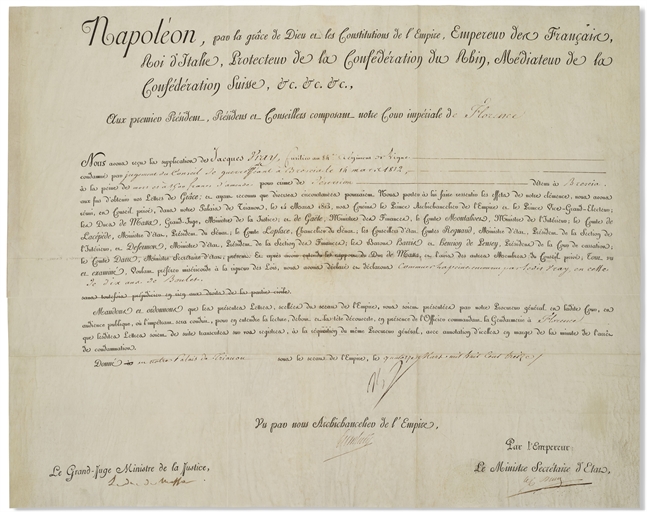 Napoléon, par la grâce de Dieu et les Constitutions de l'Empire, Empereur des Français,
Roi d'Italie, Protecteur de la Confédération du Rhin, Médiateur de la
Confédération Suisse, &c. &c. &c.,
Aux premier Président, Présidens et Conseillers composant notre Cour impériale de Florence
Nous avons reçu la supplication de Jacques
condamné par jugement du Conseil de guerre à Brescia le 14 mars 1812,
à la peine de mort et 1500 francs d'amende, pour crime de Désertion détenu à Brescia
aux fins d'obtenir nos Lettres de Grâce; et ayant reconnu que diverses circonstances
réuni, en Conseil privé, dans notre Palais de Trianon, le 14 Mars 1813,
les Ducs de Massa, Grand-Juge, Ministre de la Justice; et de Gaëte, Ministre des Finances, le Comte Montalivet, Ministre de l'Intérieur; le Comte de
Lacépède, Ministre d'état, Président du Sénat; le Comte Laplace, Chancelier du Sénat; les Conseillers d'état Comtes Regnaud, Ministre d'état, Président de la Section de
l'Intérieur, et Defermon, Ministre d'état, Président de la Section des Finances; les Barons
le Comte Daru, Ministre Secrétaire d'état, présent; Et après avoir entendu le rapport du Duc de Massa, et l'avis des autres Membres du Conseil privé, tout vu
et examiné, Voulant préférer miséricorde à la rigueur des Lois, nous avons déclaré et déclarons Commuer la peine
de dix ans de Boulet
sans toutefois préjudicier en rien aux droits de la partie civile.
Mandons et ordonnons que les présentes Lettres, scellées du sceau de l'Empire, vous soient présentées par notre Procureur général, en ladite Cour, en
audience publique, où l'impétrant sera conduit, pour en entendre la lecture, debout et la tête découverte, en présence de l'Officier commandant la Gendarmerie à Florence
que lesdites Lettres soient de suite transcrites sur vos registres, à la réquisition du même Procureur général, avec annotation d'icelles en marge de la minute de l'arrêt
de condamnation.
Donné en notre Palais de Trianon sous le sceau de l'Empire, le quatorze Mars mil huit Cent treize
Vu par nous Archichancelier de l'Empire,
Par l'Empereur:
Le Grand-Juge Ministre de la Justice,
Le Ministre Secrétaire d'État,
Le duc de Massa